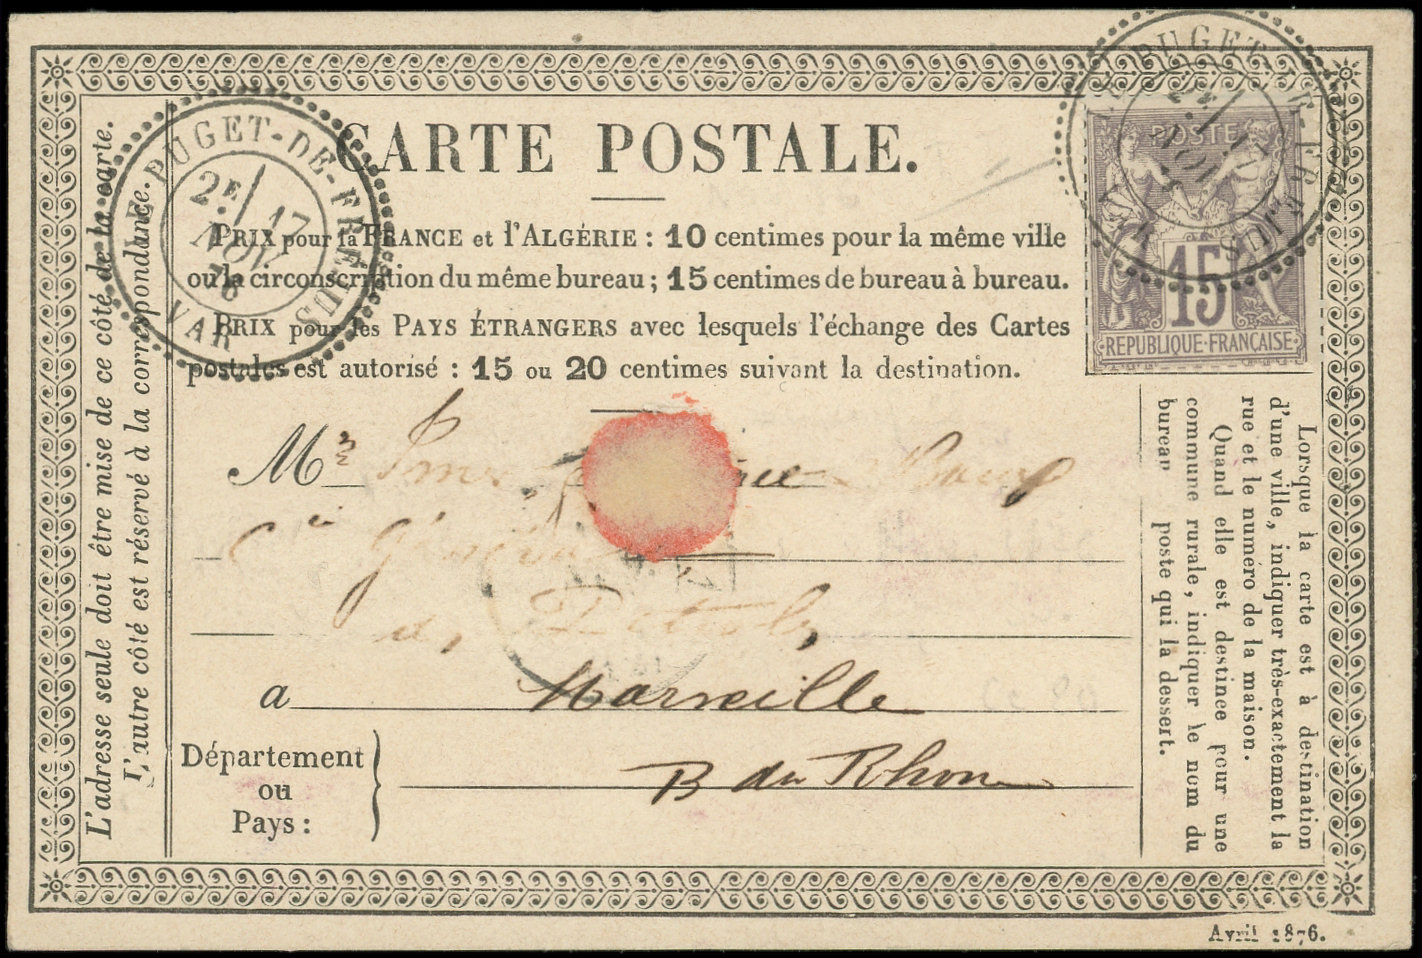 CARTE POSTALE.
PRIX pour la FRANCE et l'ALGÉRIE : 10 centimes pour la même ville
ou la circonscription du même bureau ; 15 centimes de bureau à bureau.
PRIX pour les PAYS ÉTRANGERS avec lesquels l'échange des Cartes
postales est autorisé : 15 ou 20 centimes suivant la destination.
LE PUGET-DE-FRÉJUS
2E/ 17
NOV
76
VAR
POSTE
15
REPUBLIQUE FRANÇAISE
L'adresse seule doit être mise de ce côté de la carte.
L'autre côté est réservé à la correspondance.
Mrs
Cie Générale
de
a Marseille
Département
ou
Pays :
B du Rhone
Lorsque la carte est à destination
d'une ville, indiquer très-exactement la
rue et le numéro de la maison.
Quand elle est destinée pour une
commune rurale, indiquer le nom du
bureau de poste qui la dessert.
Avril 1876.